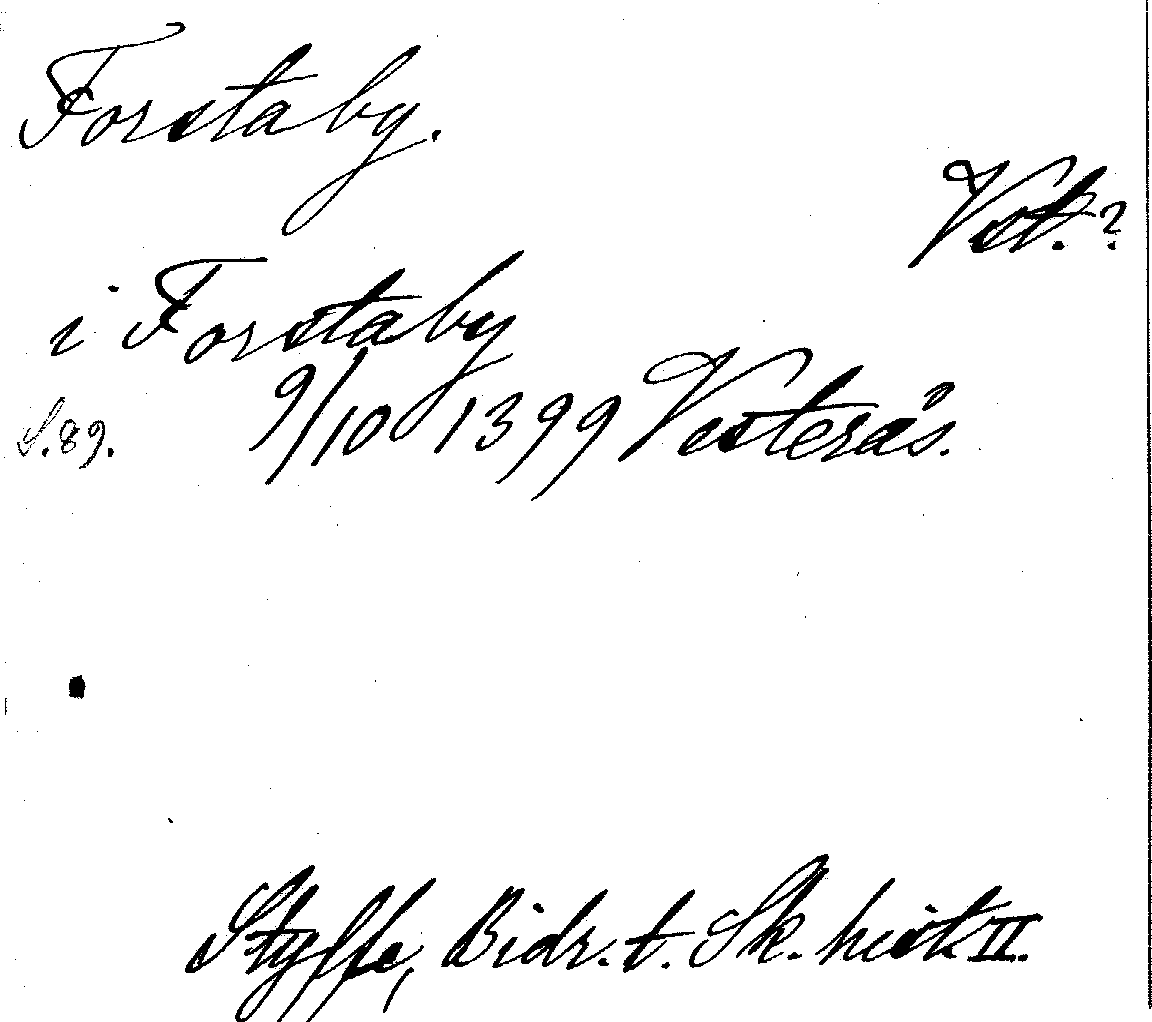 Forstaby.
Vst.?
i Forstaby
S. 89. 9/10 1399 Vesterås.
Styffe, Bidr. t. Sk. hist. II.